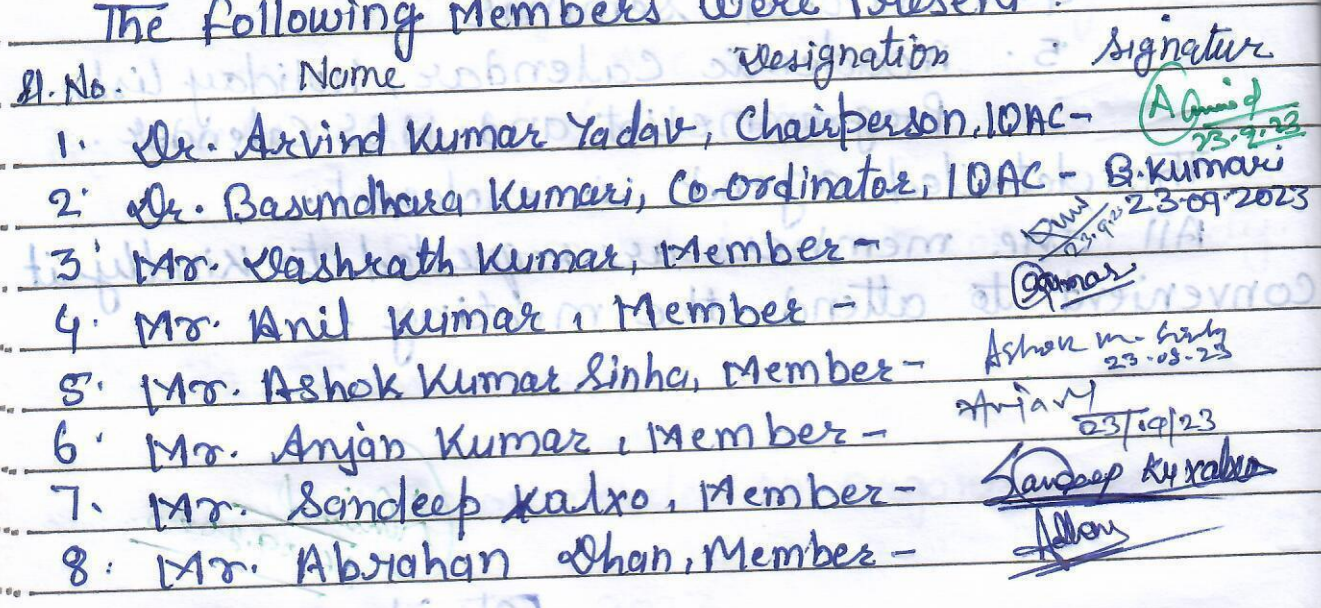 The following Members were Present :
Sl. No. Name Designation Signatur
1. Dr. Arvind Kumar Yadav, Chairperson, IQAC- 23.9.23
2. Dr. Basundhara Kumari, Co-ordinator, IQAC - B. Kumari 23.09.2023
3. Mr. Dashrath Kumar, Member - 23.9.23
4. Mr. Anil Kumar, Member -
5. Mr. Ashok Kumar Sinha, Member - Ashok 23.09.23
6. Mr. Anjan Kumar, Member - Anjan 23/09/23
7. Mr. Sandeep Kalxo, Member - Sandeep
8. Mr. Abrahan Dhan, Member -